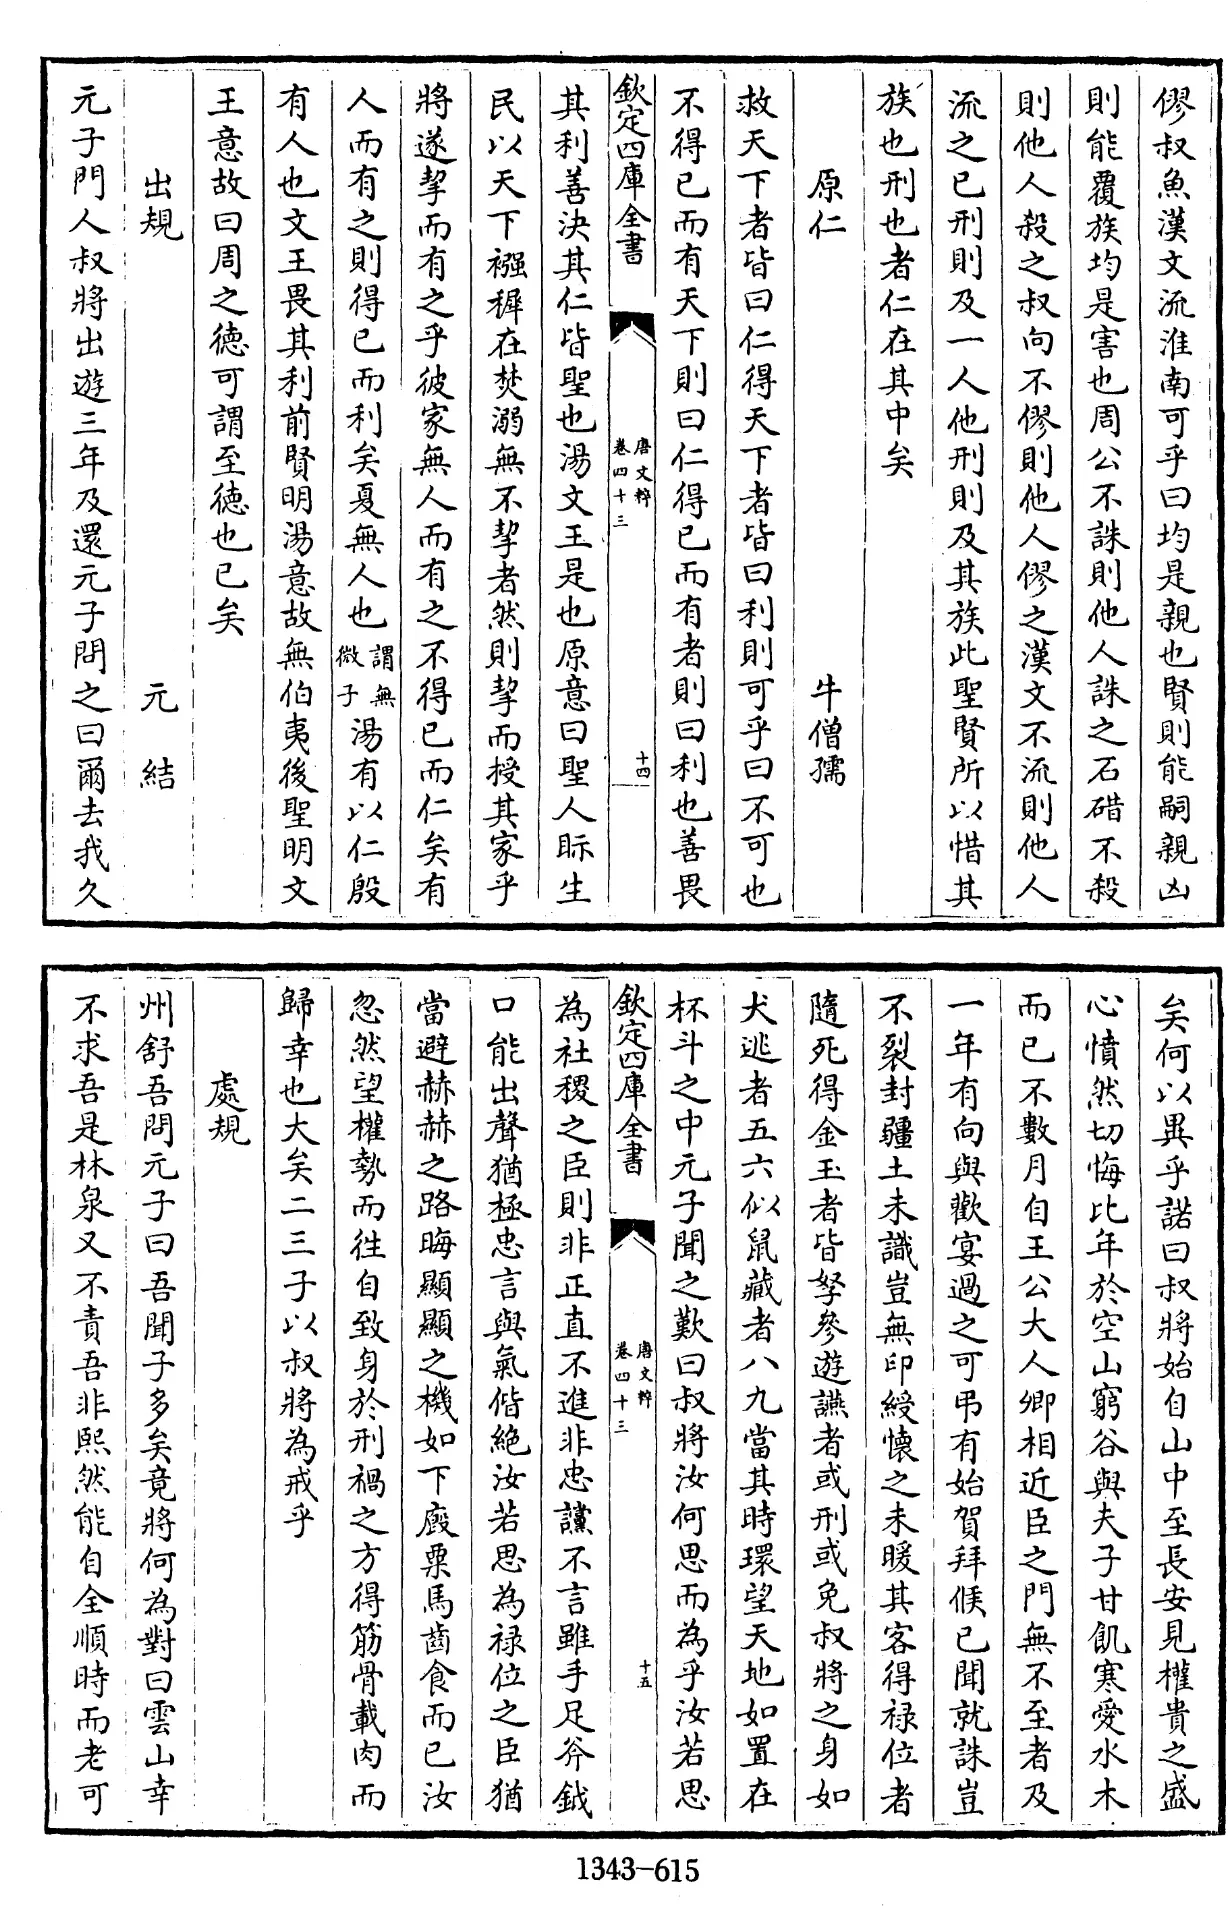 僇叔魚漢文流淮南可乎曰均是親也賢則能嗣親凶
則能覆族均是害也周公不誅則他人誅之石碏不殺
則他人殺之叔向不僇則他人僇之漢文不流則他人
流之已刑則及一人他刑則及其族此聖賢所以惜其
族也刑也者仁在其中矣
原仁 牛僧孺
救天下者皆曰仁得天下者皆曰利則可乎曰不可也
不得已而有天下則曰仁得已而有者則曰利也善畏
欽定四庫全書 唐文粹 卷四十三 十四
其利善決其仁皆聖也湯文王是也原意曰聖人眎生
民以天下襁穉在焚溺無不挈者然則挈而授其家乎
將遂挈而有之乎彼家無人而有之不得已而仁矣有
人而有之則得已而利矣夏無人也謂無微子湯有以仁殷
有人也文王畏其利前賢明湯意故無伯夷後聖明文
王意故曰周之德可謂至德也已矣
出規 元結
元子門人叔將出遊三年及還元子問之曰爾去我久
矣何以異乎諾曰叔將始自山中至長安見權貴之盛
心憤然切悔比年於空山窮谷與夫子甘飢寒愛水木
而已不數月自王公大人卿相近臣之門無不至者及
一年有向與歡宴過之可弔有始賀拜候已聞就誅豈
不裂封疆土未識豈無印綬懷之未暖其客得祿位者
隨死得金玉者皆孥參遊讌者或刑或免叔將之身如
犬逃者五六似鼠藏者八九當其時環望天地如置在
杯斗之中元子聞之歎曰叔將汝何思而為乎汝若思
欽定四庫全書 唐文粹 卷四十三 十五
為社稷之臣則非正直不進非忠讜不言雖手足斧鉞
口能出聲猶極忠言與氣偕絕汝若思為祿位之臣猶
當避赫赫之路晦顯顯之機如下廄粟馬齒食而已汝
忽然望權勢而往自致身於刑禍之方得筋骨載肉而
歸幸也大矣二三子以叔將為戒乎
處規
州舒吾問元子曰吾聞子多矣竟將何為對曰雲山幸
不求吾是林泉又不責吾非熙然能自全順時而老可
1343-615